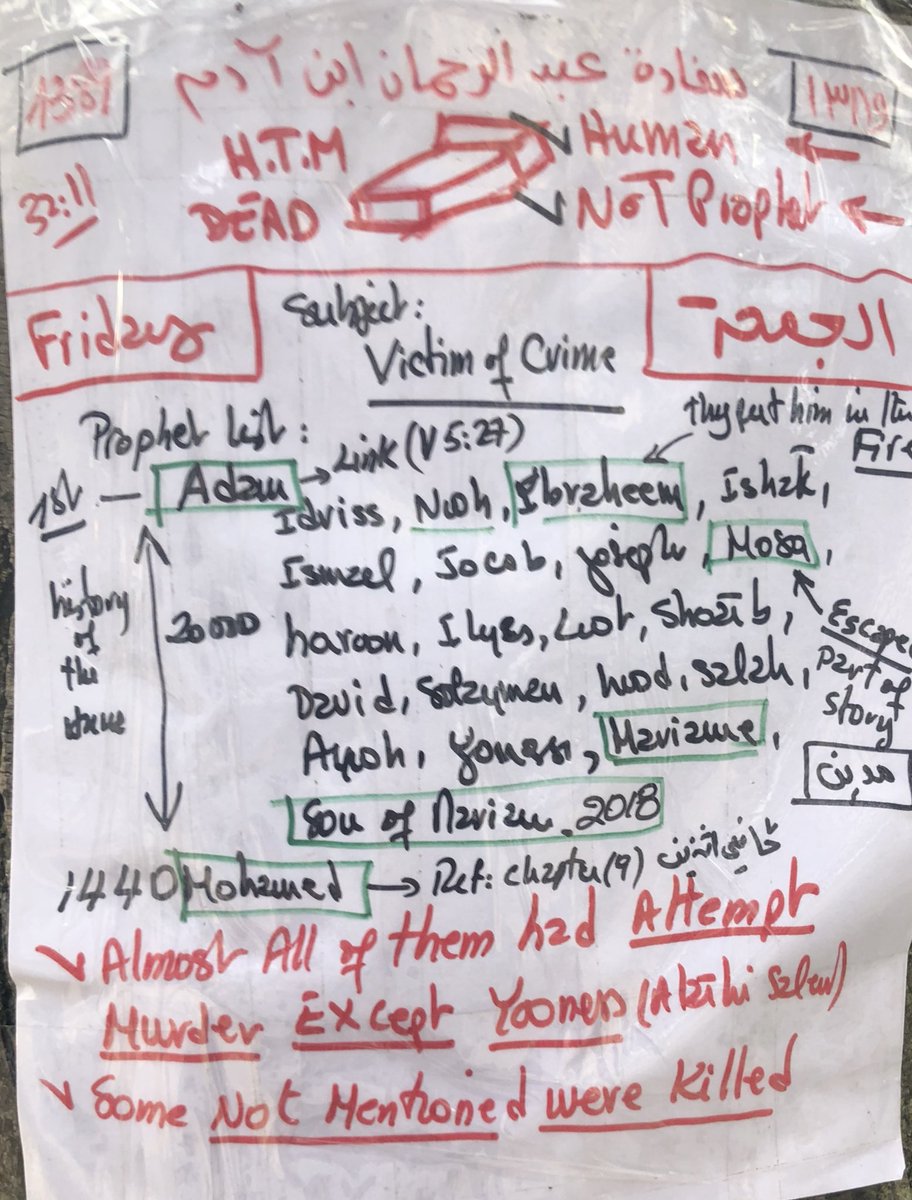 عبد الرحمان ابن آدم
H.T.M
Human
DEAD
NOT Prophet
32:11
Friday
Subject:
Victim of Crime
الجمعة
Prophet List:
Link (V 5:27)
They put him in
Fire
1st — Adam
Idriss, Nooh, Ibraheem, Ishak,
Ismael, Jocob, Joseph, Mosa,
haroon, Ilyes, Loot, Shoaib,
David, Solaymen, hood, Salah,
Ayoh, Yoness, Mariame,
Son of Mariam 2018
history
of
the
20000
Escape
Part of
Story
مدين
1440 Mohamed → Ref: chapter (9) ثاني اثنين
Almost All of them had Attempt
Murder Except Yooness (Alaihi Salem)
Some Not Mentioned were Killed